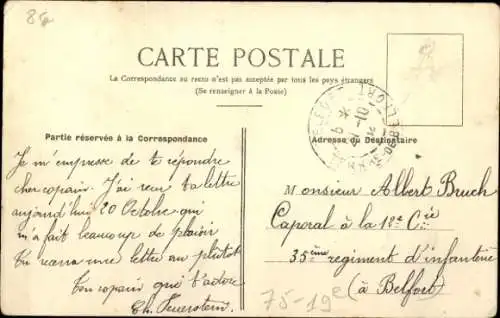 85
CARTE POSTALE
La Correspondance au recto n'est pas acceptée par tous les pays étrangers
(Se renseigner à la Poste)
Partie réservée à la Correspondance
Adresse du Destinataire
Je m'empresse de te répondre
cher copain. J'ai reçu ta lettre
aujourd'hui 20 Octobre qui
m'a fait beaucoup de plaisir
Tu auras une lettre au plutôt
Ton copain qui t'adore
Ch. Feuerstein
Monsieur Albert Bruch
Caporal à la 12e Cie
35ème regiment d'infanterie
(à Belfort)
75-19e